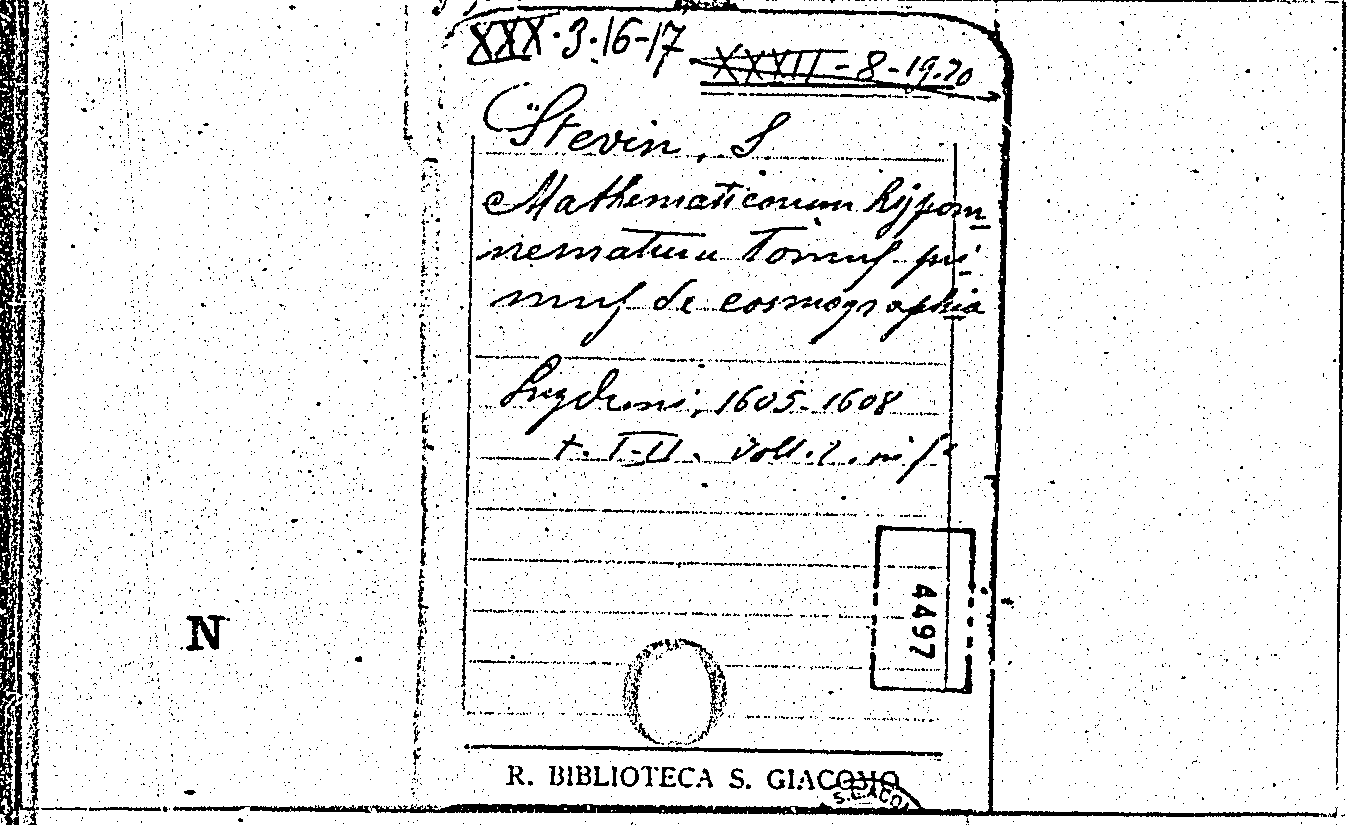 XXX.3.16-17
XXXIII-8-19.20
Stevin, S
Mathematicorum hypom
nematum Tomus pri
mus de cosmographia
Lugduni, 1605-1608
t. I-II. voll. 2. in f°
4497
N
R. BIBLIOTECA S. GIACOMO
S. GIACO